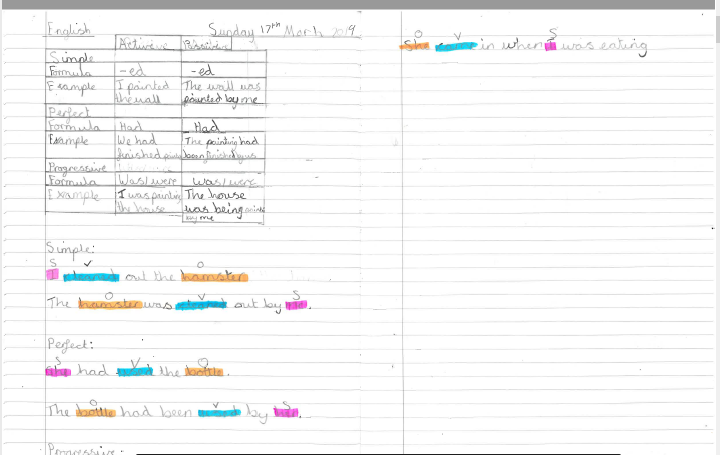 English Sunday 17th March 2019
Active Passive
Simple
Formula -ed -ed
Example I painted The wall was
the wall painted by me
Perfect
Formula Had Had
Example We had The painting had
finished been finished by us
Progressive
Formula Was/were was/were
Example I was painting The house
the house was being
by me
Simple:
S V O
I cleaned out the hamster
O V S
The hamster was cleaned out by me.
Perfect:
S V O
had the bottle.
O V S
The bottle had been by
Progressive:
O V S
She in when I was eating